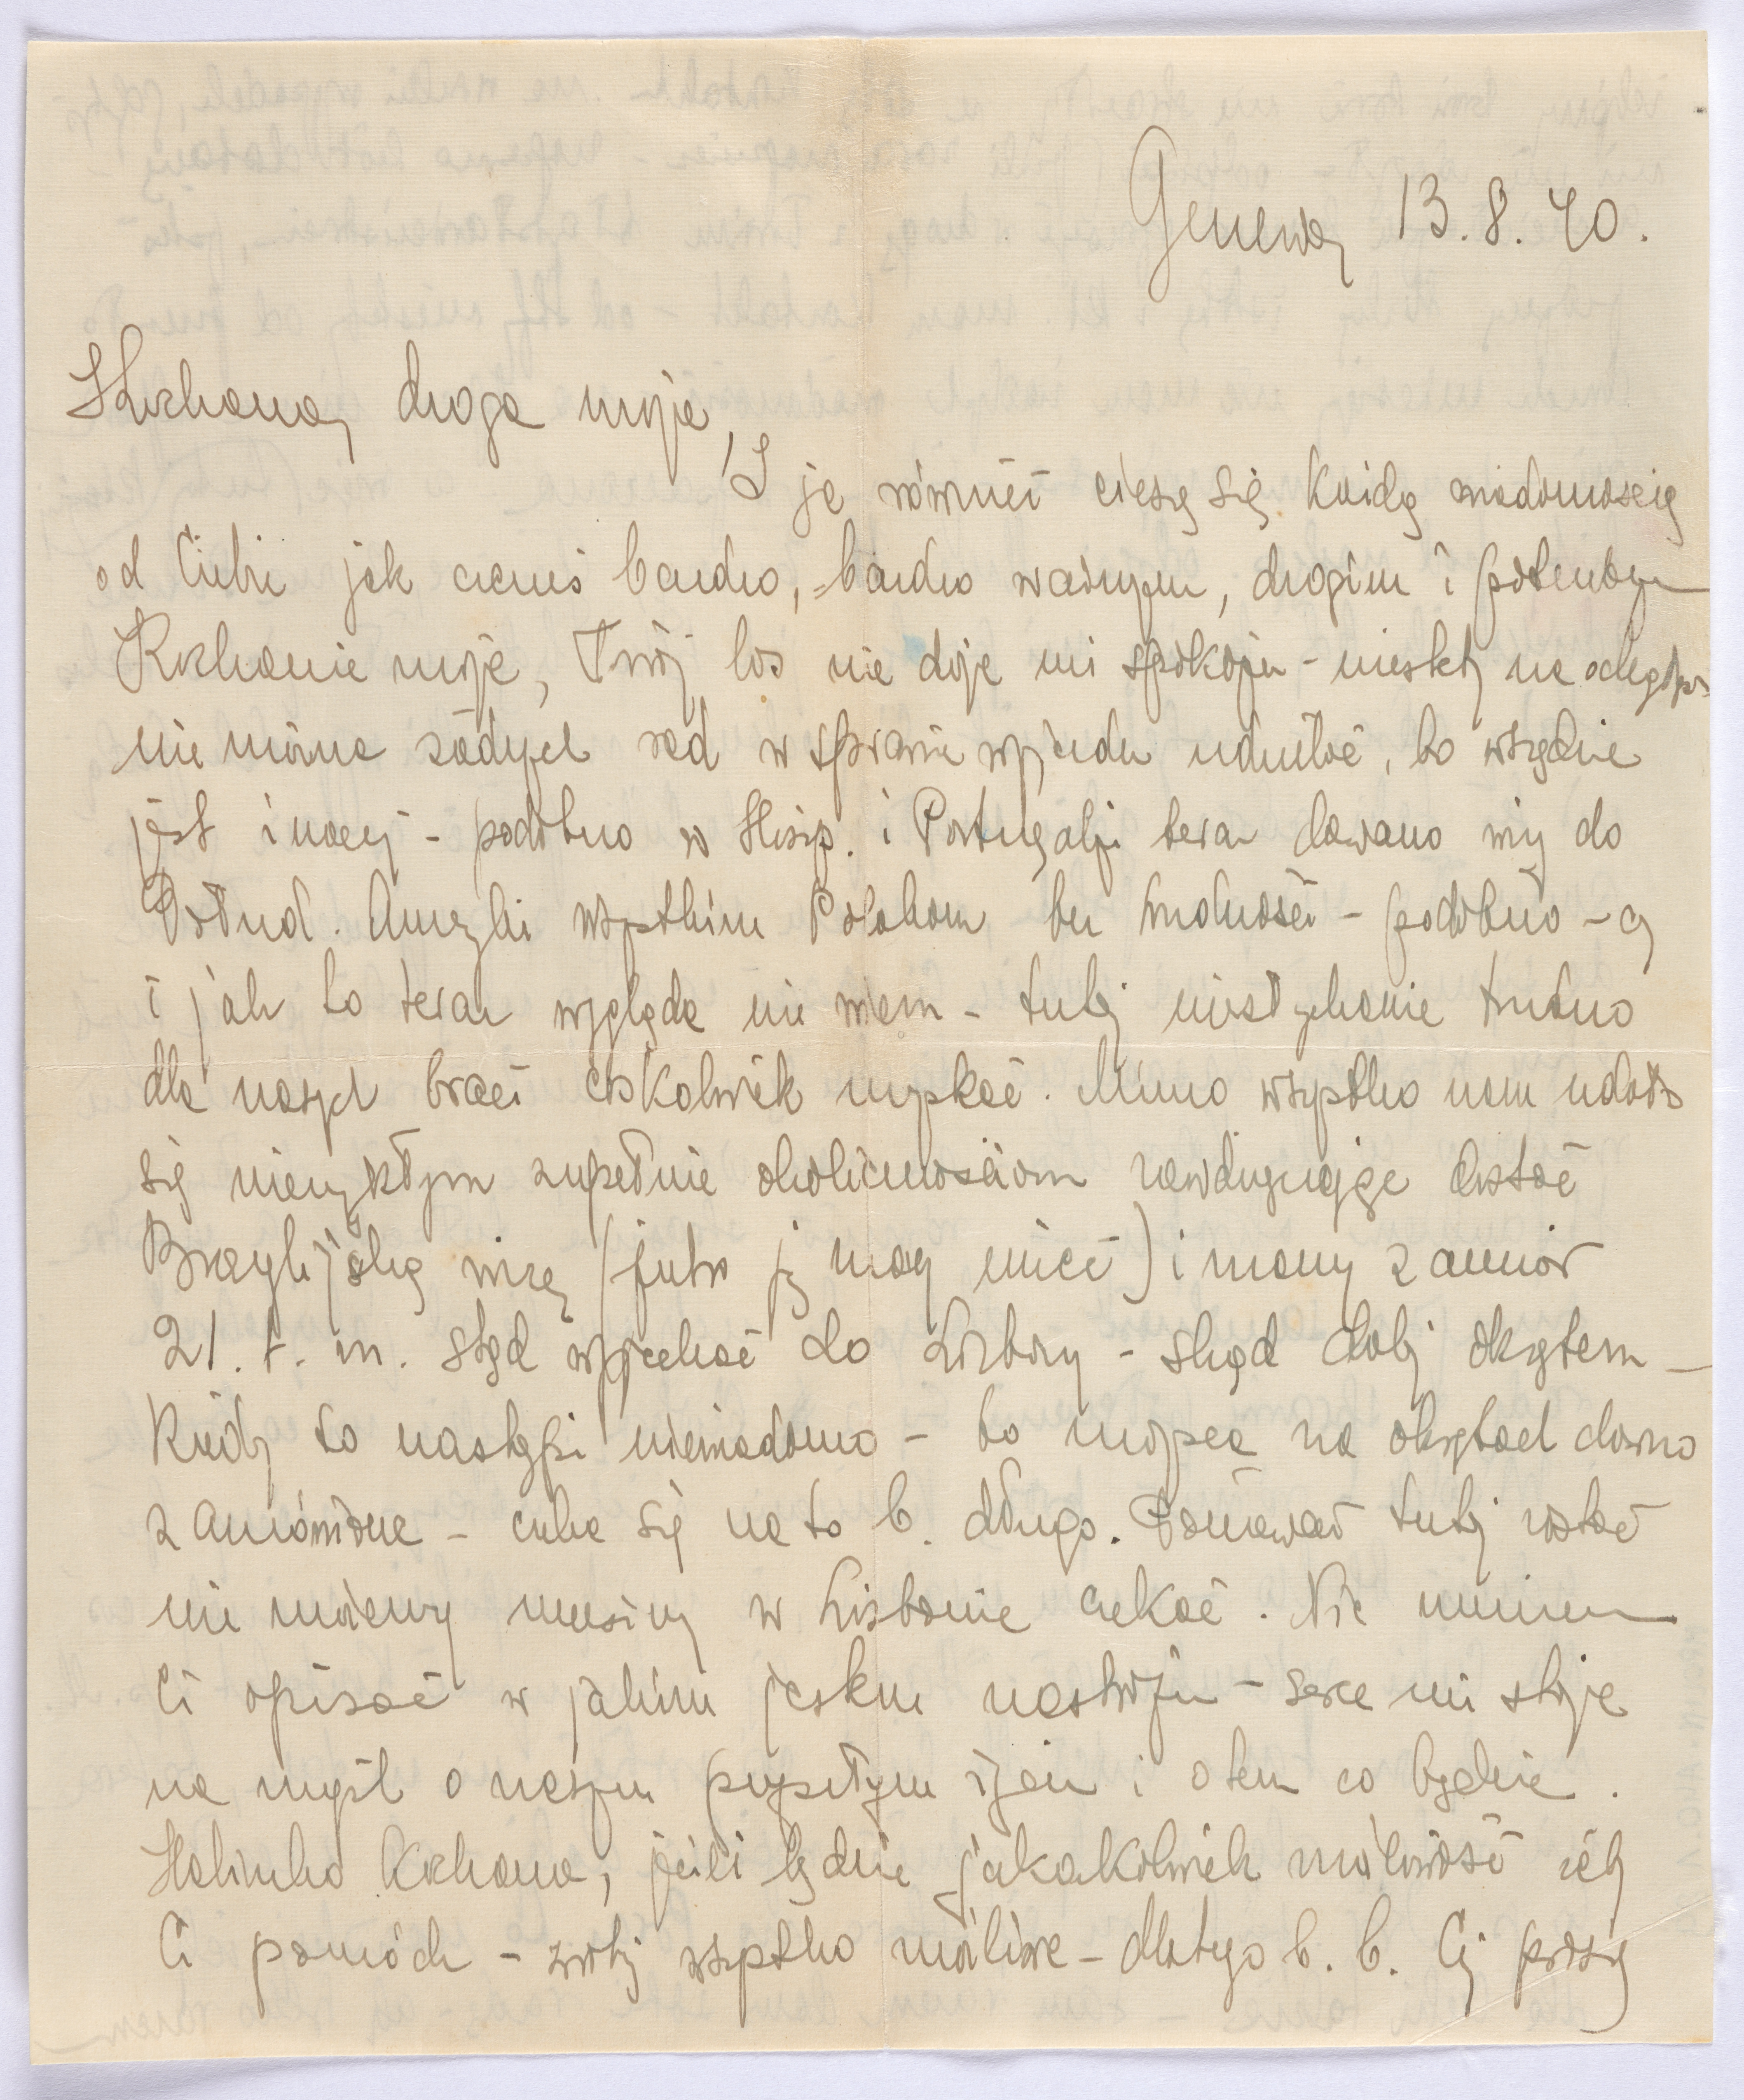 Genewa, 13.8.40.
Kochana, droga moja,
I ja również cieszę się każdą wiadomością
od Ciebie jak czemś bardzo, bardzo ważnym, drogim i potrzebnym
Kochanie moje, Twój los nie daje mi spokoju - niestety na odległość
nie można żadnych rad w sprawie wyjazdu udzielać, bo wszędzie
jest inaczej - podobno w Hiszp. i Portugalji teraz dawano wizy do
Połud. Ameryki wszystkim Polakom bez trudności - podobno - czy
i jak to teraz wygląda nie wiem - tutaj niesłychanie trudno
dla naszych braci cośkolwiek uzyskać. Mimo wszystko nam udało
się niezwykłym zupełnie okolicznościom zawdzięczając dostać
Brazylijską wizę (jutro ją mamy mieć) i mamy zamiar
21. b. m. stąd wyjechać do Lizbony - skąd dalej okrętem -
Kiedy to nastąpi niewiadomo - bo miejsca na okrętach dawno
zamówione - czeka się na to b. długo. Ponieważ tutaj zostać
nie możemy musimy w Lisbonie czekać. Nie umiem
Ci opisać w jakim jestem nastroju - serce mi staje
na myśl o naszym przeszłym życiu i o tem co będzie.
Halinko kochana, jeżeli będzie jakakolwiek możliwość żeby
Ci pomódz - zrobię wszystko możliwe - dlatego b. b. Cię proszę